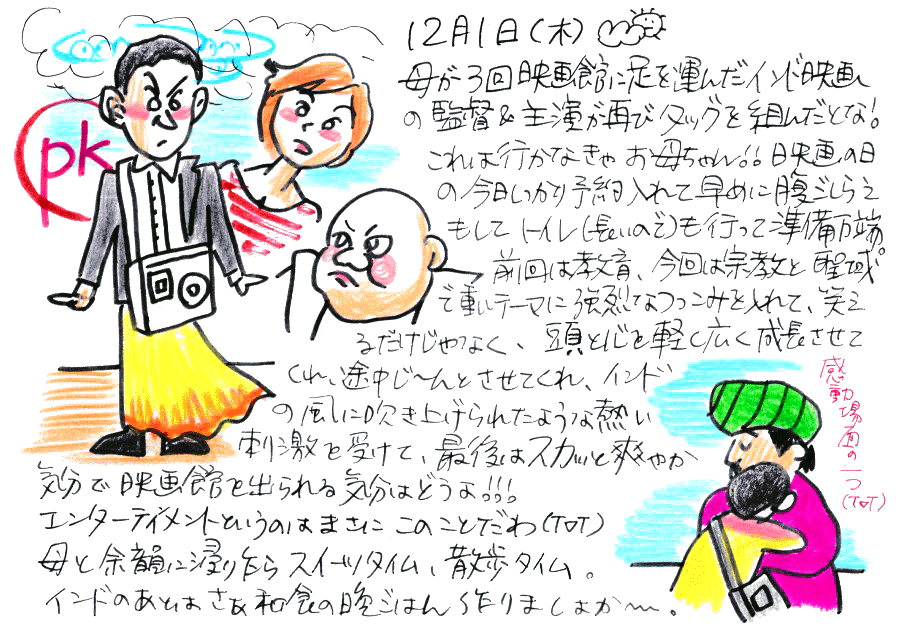 12月1日(木)
母が3回映画館に足を運んだインド映画
の監督&主演が再びタッグを組んだとな!
これは行かなきゃお母ちゃん!!映画の日
の今日しっかり予約入れて早めに腹ごしらえ
もしてトイレ(長いので)も行って準備万端。
前回は教育、今回は宗教と聖域
で重いテーマに強烈なつっこみを入れて、笑え
るだけじゃなく、頭と心を軽く広く成長させて
くれ、途中じ〜んとさせてくれ、インド
の風に吹き上げられたような熱い
刺激を受けて、最後はスカッと爽やか
気分で映画館を出られる気分はどうよ!!!
エンターテイメントというのはまさに このことだわ(T▽T)
母と余韻に浸りながらスイーツタイム、散歩タイム。
インドのあとはさぁ和食の晩ごはん作りましょか〜。
pk
感動場面の一つ
(T▽T)